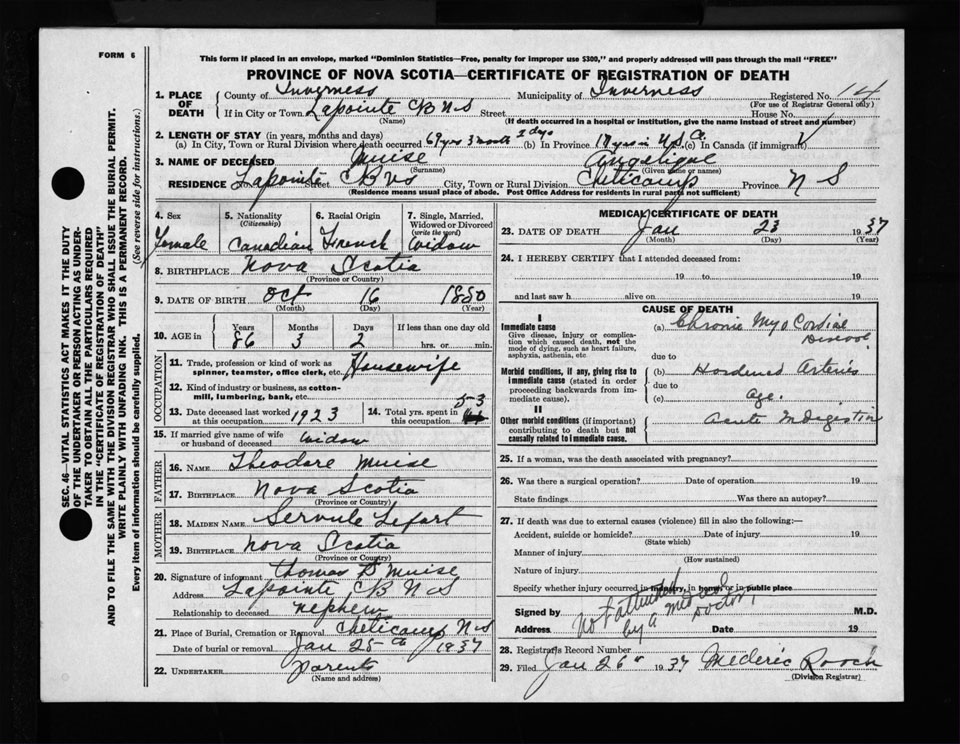 FORM 6
This form if placed in an envelope, marked "Dominion Statistics—Free, penalty for improper use $300," and properly addressed will pass through the mail "FREE"
PROVINCE OF NOVA SCOTIA—CERTIFICATE OF REGISTRATION OF DEATH
1. PLACE OF DEATH
County of Inverness Municipality of Inverness Registered No. 14
(For use of Registrar General only)
If in City or Town Lapointe CB NS Street House No.
(Name) (If death occurred in a hospital or institution, give the name instead of street and number)
2. LENGTH OF STAY (in years, months and days)
(a) In City, Town or Rural Division where death occurred 69 yrs 3 month 2 dys (b) In Province 17 years in U.S.a. (c) In Canada (if immigrant)
3. NAME OF DECEASED Muise Angelique
(Surname) (Given name or names)
RESIDENCE Lapointe Street CB NS City, Town or Rural Division Cheticamp Province N S
(Residence means usual place of abode. Post Office Address for residents in rural parts not sufficient)
4. Sex
Female
5. Nationality
(Citizenship)
Canadian
6. Racial Origin
French
7. Single, Married, Widowed or Divorced
(write the word)
Widow
8. BIRTHPLACE Nova Scotia
(Province or Country)
9. DATE OF BIRTH Oct 16 1850
(Month) (Day) (Year)
10. AGE in
Years Months Days If less than one day old
86 3 2 hrs. or min.
OCCUPATION
11. Trade, profession or kind of work as spinner, teamster, office clerk, etc. Housewife
12. Kind of industry or business, as cotton-mill, lumbering, bank, etc.
13. Date deceased last worked at this occupation 1923
14. Total yrs. spent in this occupation 53
15. If married give name of wife or husband of deceased widow
FATHER
16. NAME Theodore Muise
17. BIRTHPLACE Nova Scotia
(Province or Country)
MOTHER
18. MAIDEN NAME Servule Lefort
19. BIRTHPLACE Nova Scotia
(Province or Country)
20. Signature of informant Thomas P Muise
Address Lapointe CB N S
Relationship to deceased nephew
21. Place of Burial, Cremation or Removal Cheticamp N S
Date of burial or removal Jan 25th 1937
22. UNDERTAKER Parents
(Name and address)
MEDICAL CERTIFICATE OF DEATH
23. DATE OF DEATH Jan 23 1937
(Month) (Day) (Year)
24. I HEREBY CERTIFY that I attended deceased from:
19 to 19
and last saw h alive on 19
CAUSE OF DEATH
I
Immediate cause
Give disease, injury or complication which caused death, not the mode of dying, such as heart failure, asphyxia, asthenia, etc.
(a) Chronic Myo Cordial
due to
Morbid conditions, if any, giving rise to immediate cause (stated in order proceeding backwards from immediate cause).
(b) Hordened Arteries
due to
(c) Age.
II
Other morbid conditions (if important) contributing to death but not causally related to immediate cause.
Acute Indigestion
25. If a woman, was the death associated with pregnancy?
26. Was there a surgical operation? Date of operation 19
State findings Was there an autopsy?
27. If death was due to external causes (violence) fill in also the following:—
Accident, suicide or homicide? Date of injury 19
(State which)
Manner of injury
(How sustained)
Nature of injury
Specify whether injury occurred in industry, in home, or in public place
Signed by Not attended by a Medical Doctor. M.D.
Address Date 19
28. Registrar's Record Number
29. Filed Jan 26th 1937 Mederic Roach
(Division Registrar)
SEC. 46—VITAL STATISTICS ACT MAKES IT THE DUTY
OF THE UNDERTAKER OR PERSON ACTING AS UNDER-
TAKER TO OBTAIN ALL THE PARTICULARS REQUIRED
IN THE "CERTIFICATE OF REGISTRATION OF DEATH"
AND TO FILE THE SAME WITH THE DIVISION REGISTRAR WHO SHALL ISSUE THE BURIAL PERMIT.
WRITE PLAINLY WITH UNFADING INK. THIS IS A PERMANENT RECORD.
Every item of information should be carefully supplied. (See reverse side for instructions.)